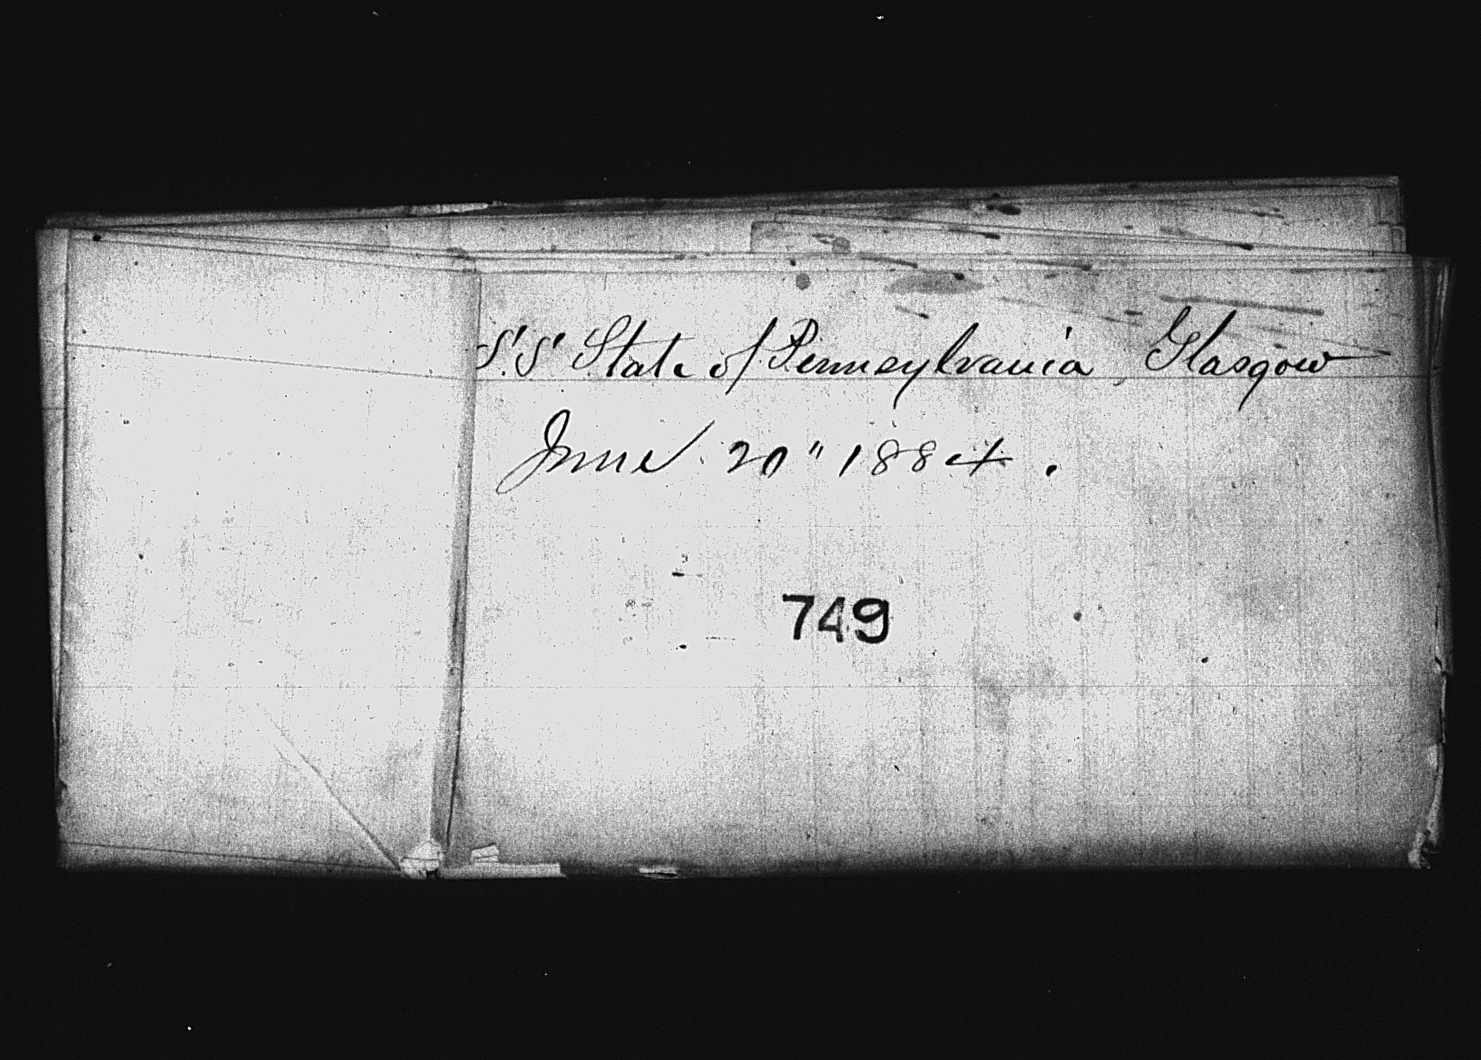 S.S. State of Pennsylvania, Glasgow
June 20" 1884.
749